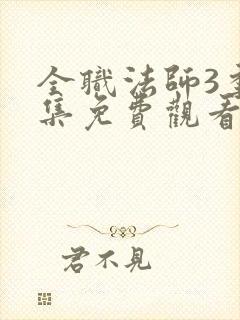 全職法師3季
集免費觀看
君不見